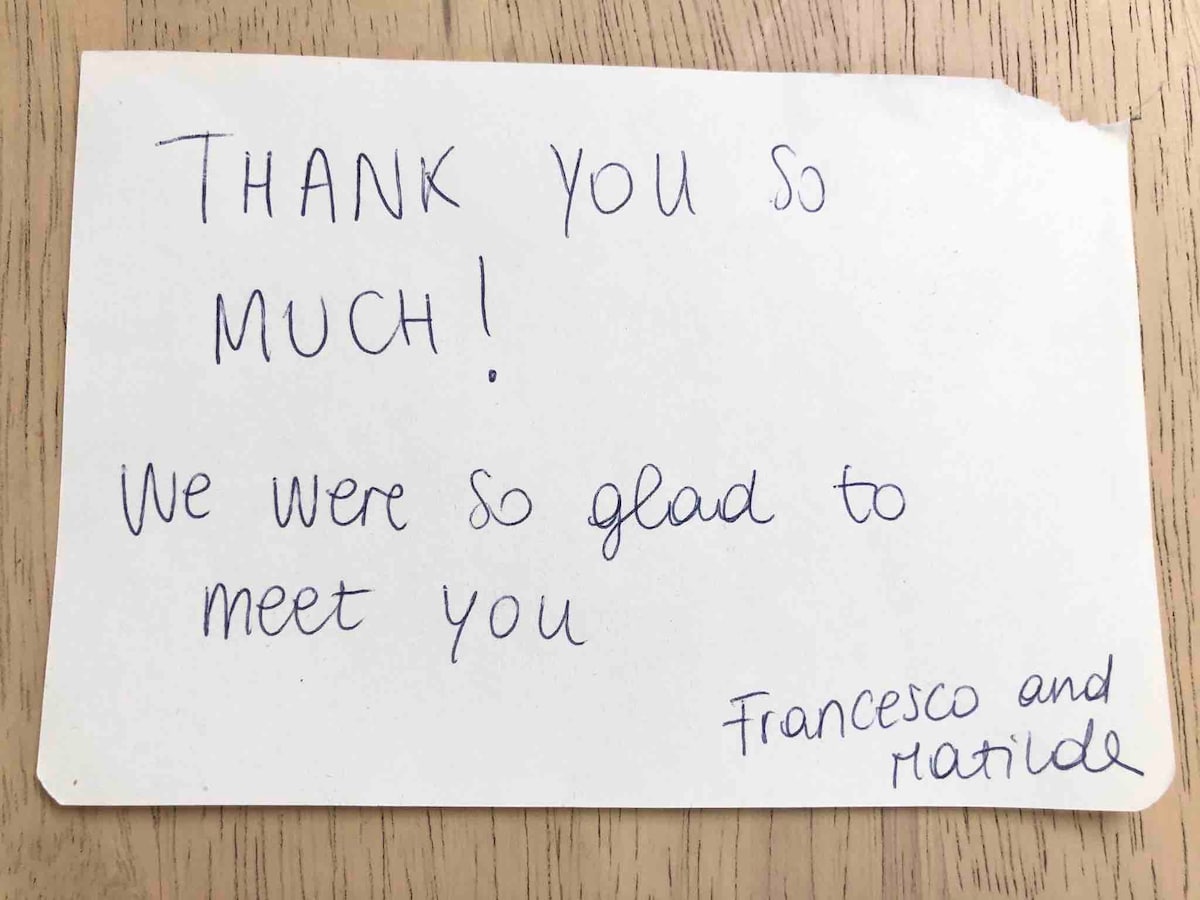 THANK YOU SO
MUCH!
We were so glad to
meet you
Francesco and
Matilde